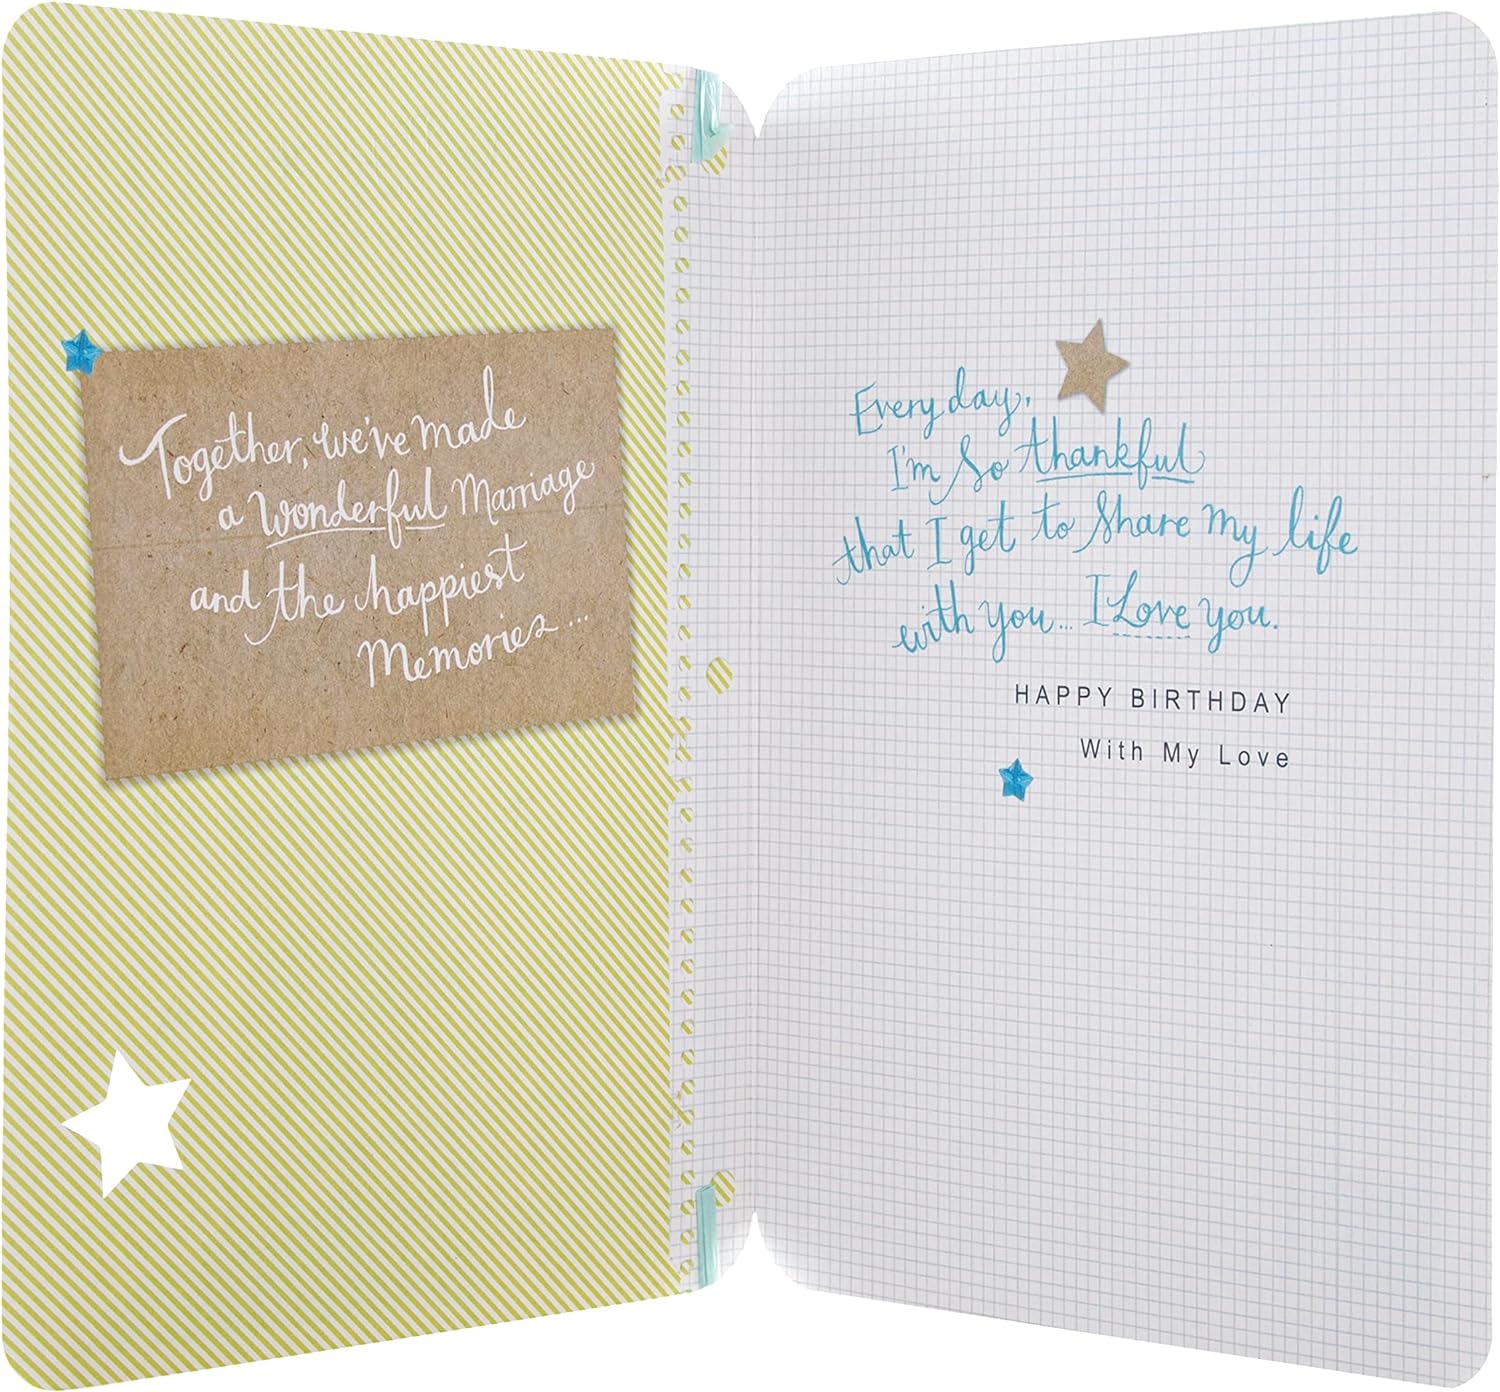 Together, we've made
a wonderful Marriage
and the happiest
Memories...
Every day,
I'm so thankful
that I get to share my life
with you... I Love you.
HAPPY BIRTHDAY
With My Love